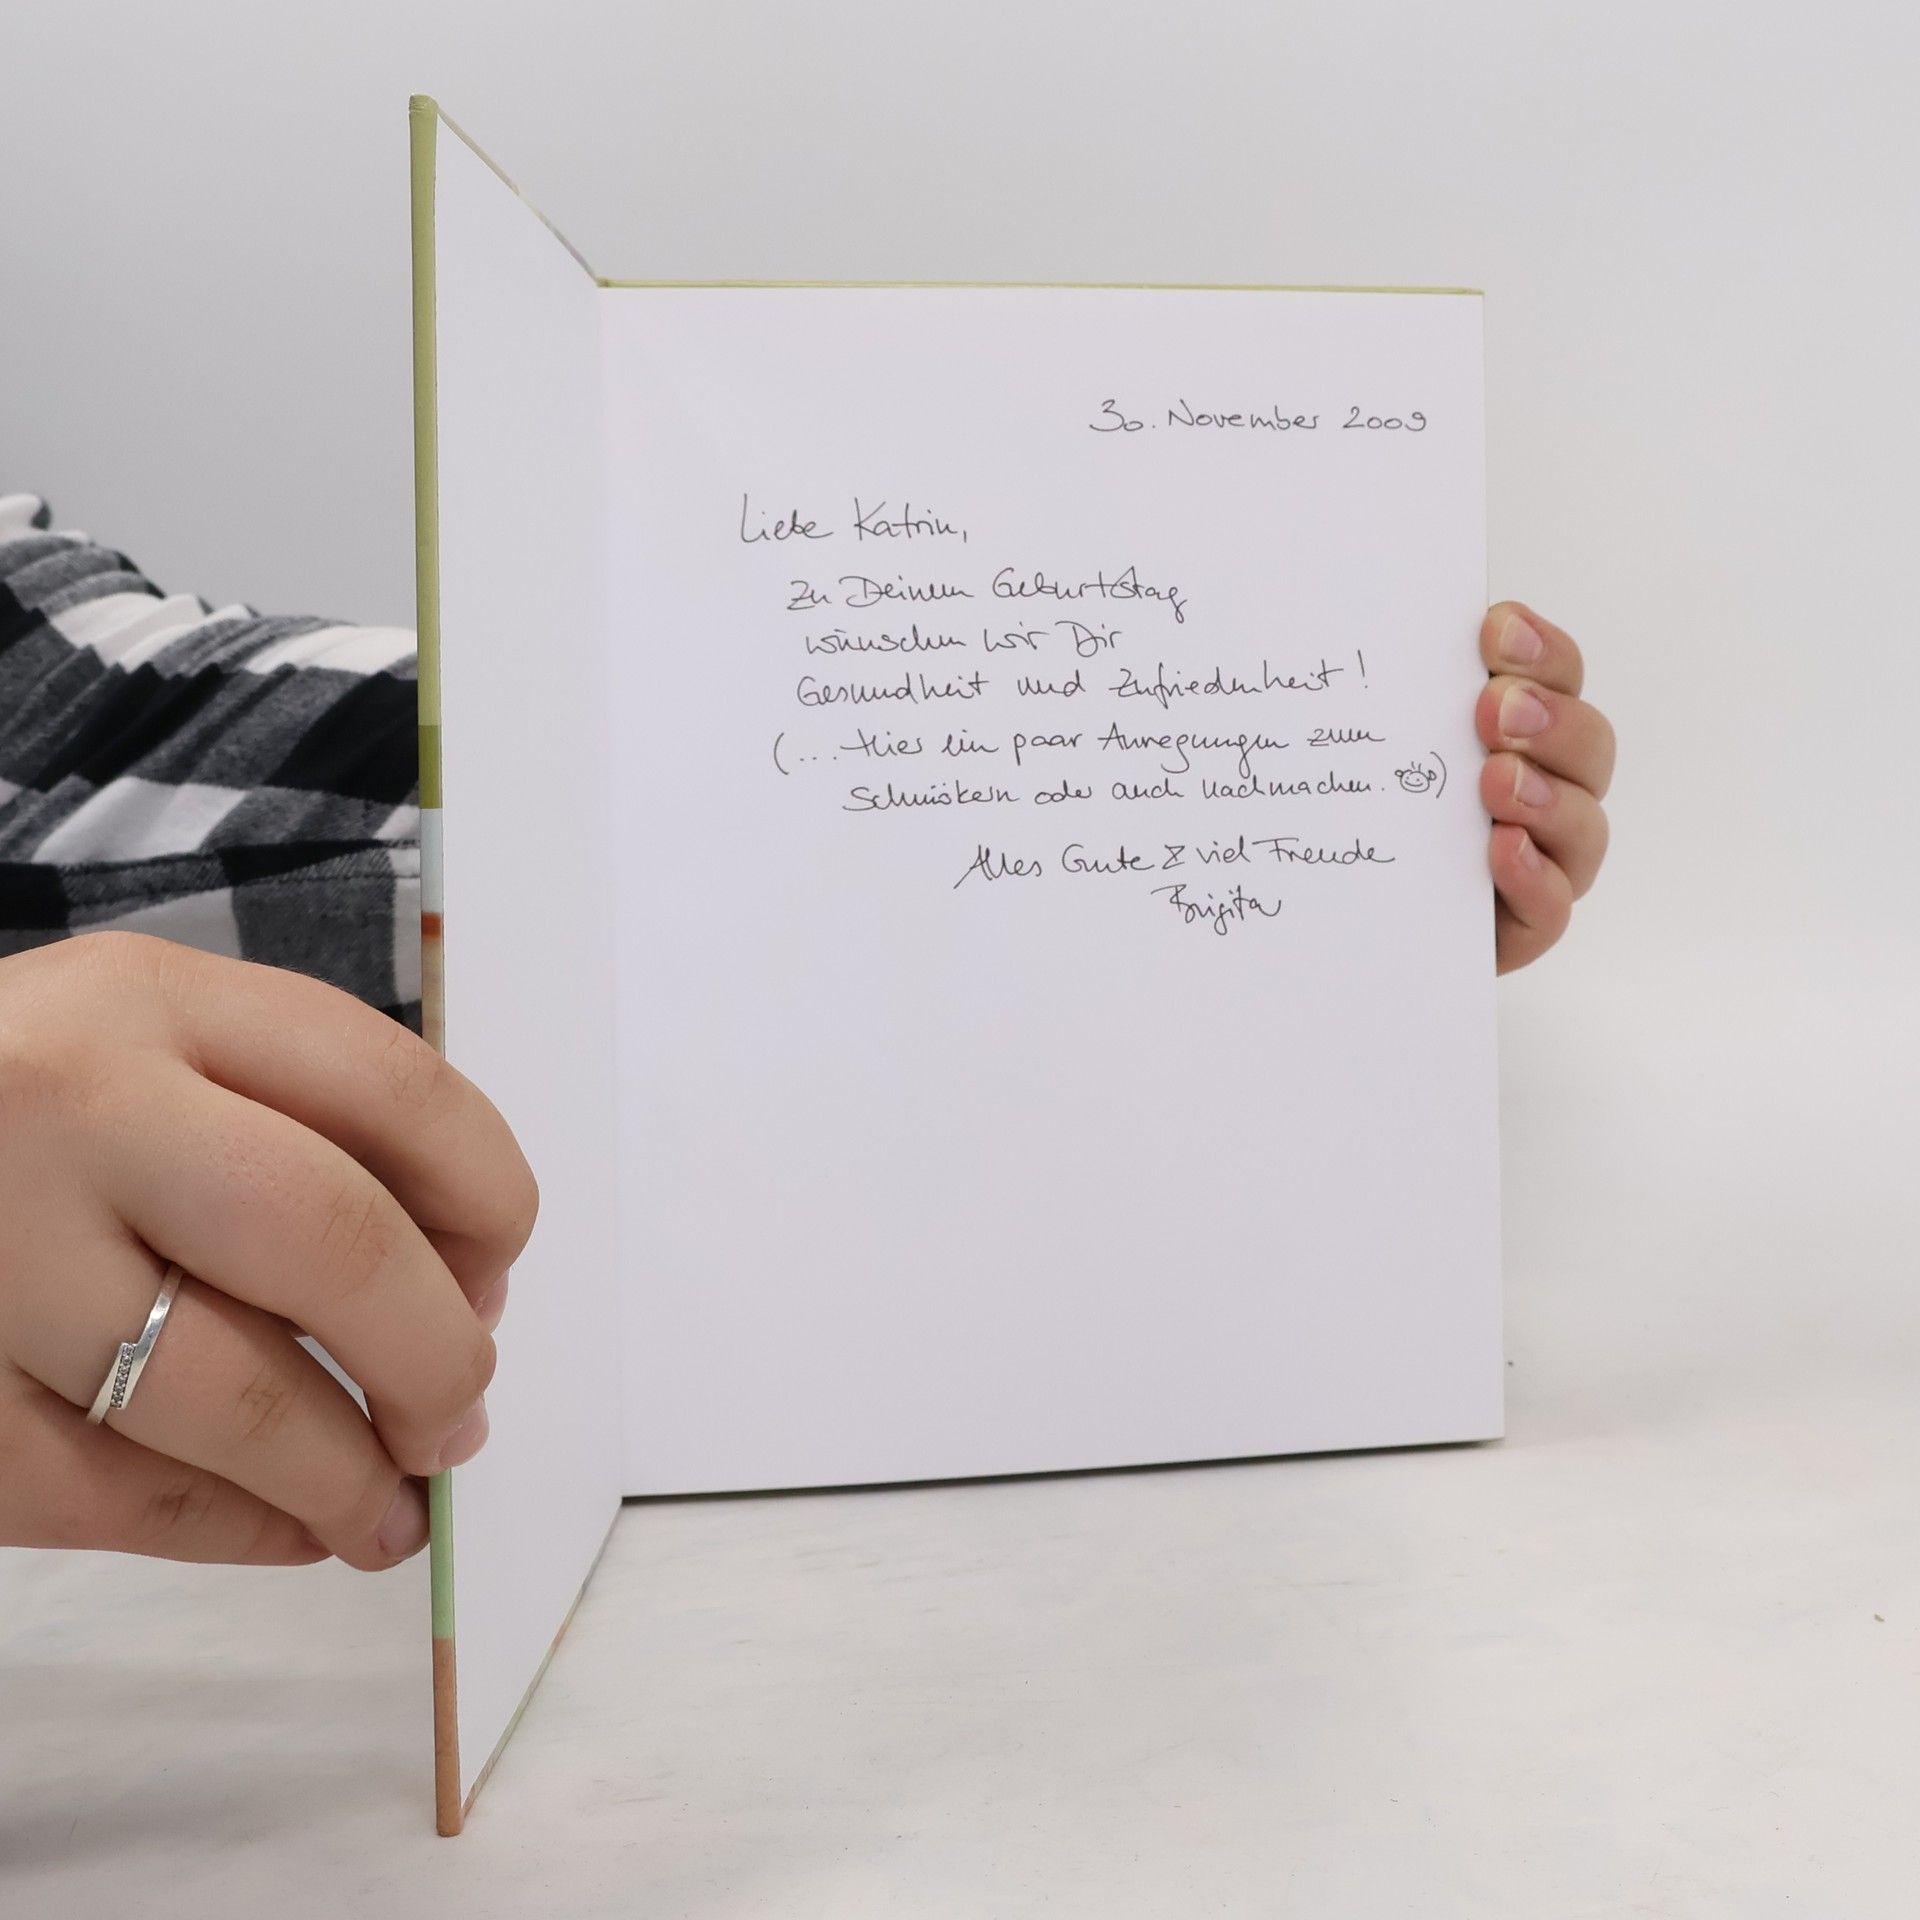 30. November 2009
Liebe Katrin,
zu Deinem Geburtstag
wünschen wir Dir
Gesundheit und Zufriedenheit!
(... Hier ein paar Anregungen zum
Schmökern oder auch nachmachen. )
Alles Gute & viel Freude
Brigita